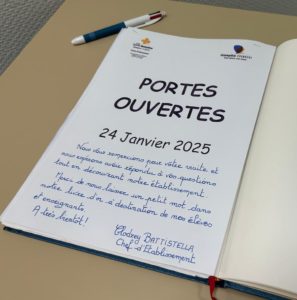 PORTES
OUVERTES
24 Janvier 2025
Nous vous remercions pour votre visite et
nous espérons avoir répondu à vos questions
tout en découvrant notre établissement
Merci de nous laisser un petit mot dans
notre livre d'or à destination de nos élèves
et enseignants
A très bientôt !
BATTISTELLA
Chef d'Etablissement